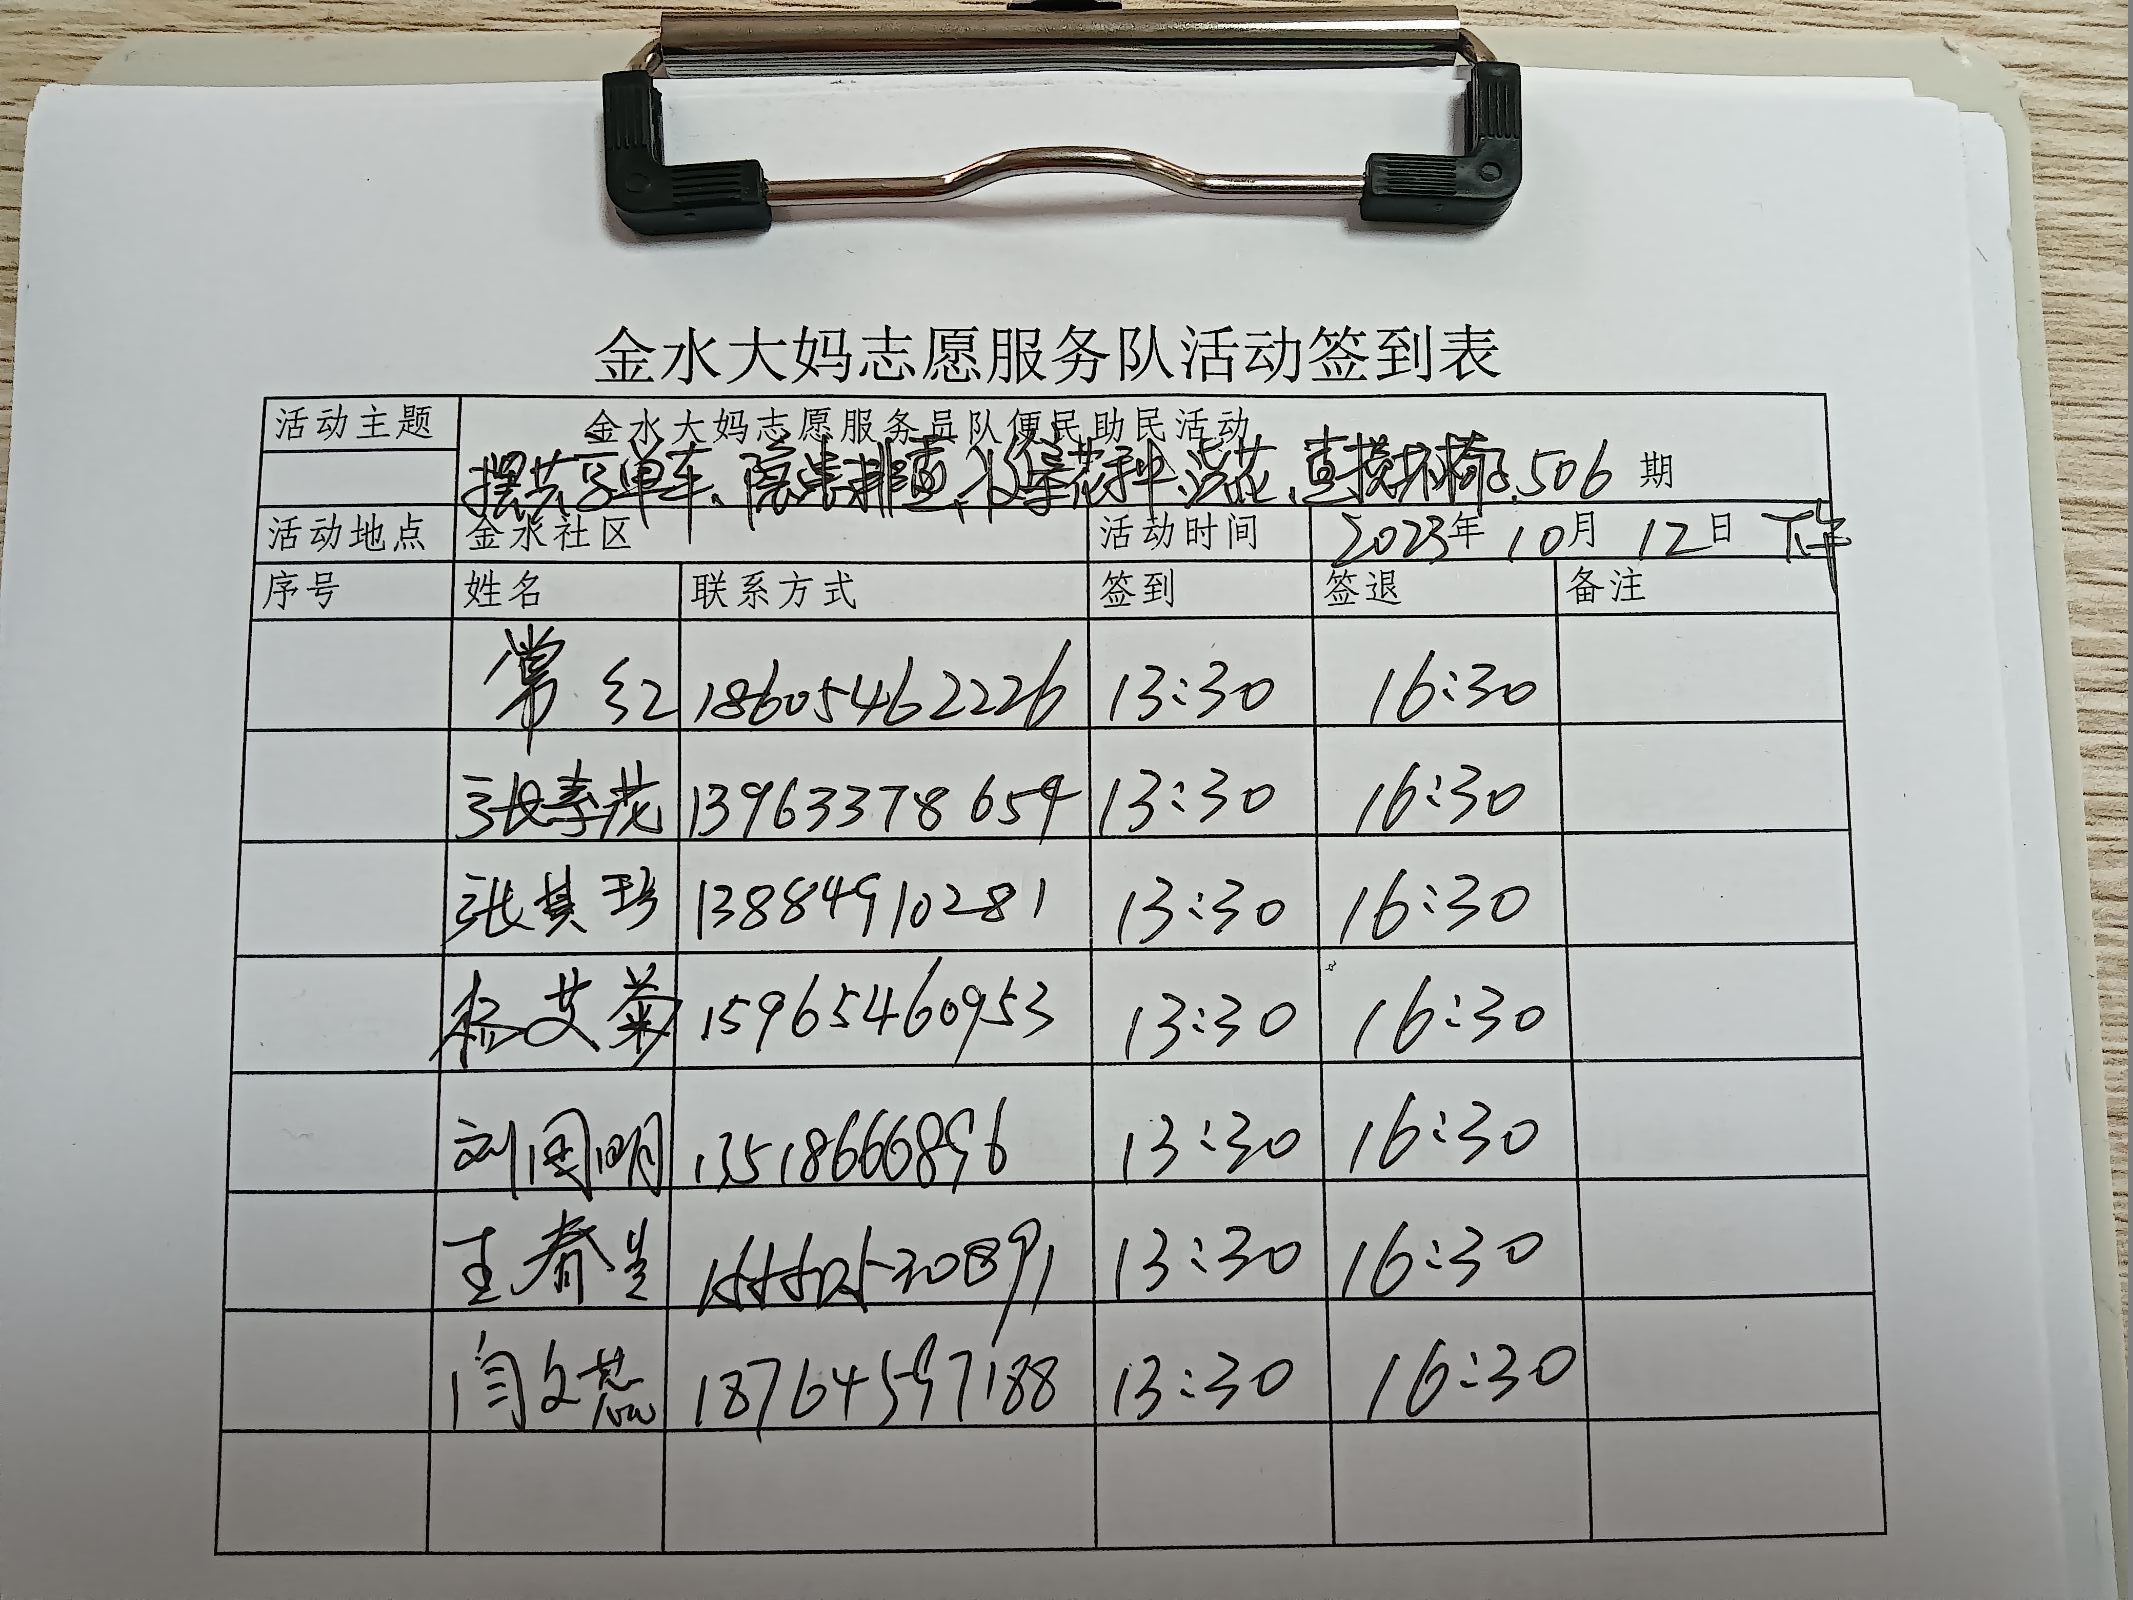 金水大妈志愿服务队活动签到表
活动主题 金水大妈志愿服务员队便民助民活动
摆共享单车、隐患排查、收集花种、浇花、 506 期
活动地点 金水社区 活动时间 2023年 10月 12日 下午
序号 姓名 联系方式 签到 签退 备注
常红 18605462226 13:30 16:30
张秀花 13963378654 13:30 16:30
张其珍 13884910281 13:30 16:30
杨艾菊 15965460953 13:30 16:30
刘国明 13518666896 13:30 16:30
王春兰 13:30 16:30
闫文蕊 18764597188 13:30 16:30